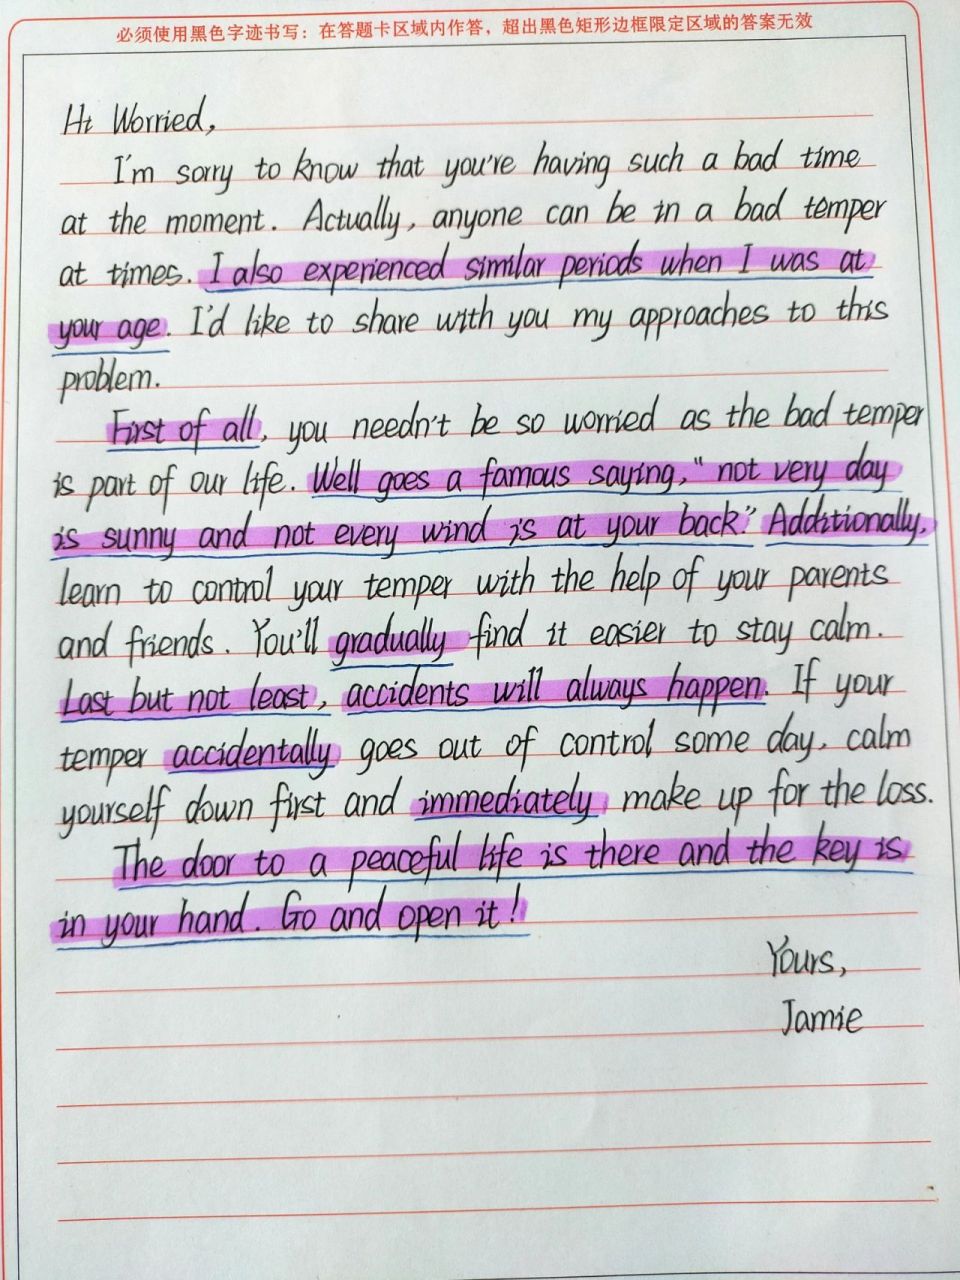 必须使用黑色字迹书写：在答题卡区域内作答，超出黑色矩形边框限定区域的答案无效
Hi Worried,
I'm sorry to know that you're having such a bad time
at the moment. Actually, anyone can be in a bad temper
at times. I also experienced similar periods when I was at
your age. I'd like to share with you my approaches to this
problem.
First of all, you needn't be so worried as the bad temper
is part of our life. Well goes a famous saying, "not very day
is sunny and not every wind is at your back." Additionally,
learn to control your temper with the help of your parents
and friends. You'll gradually find it easier to stay calm.
Last but not least, accidents will always happen. If your
temper accidentally goes out of control some day, calm
yourself down first and immediately make up for the loss.
The door to a peaceful life is there and the key is
in your hand. Go and open it!
Yours,
Jamie